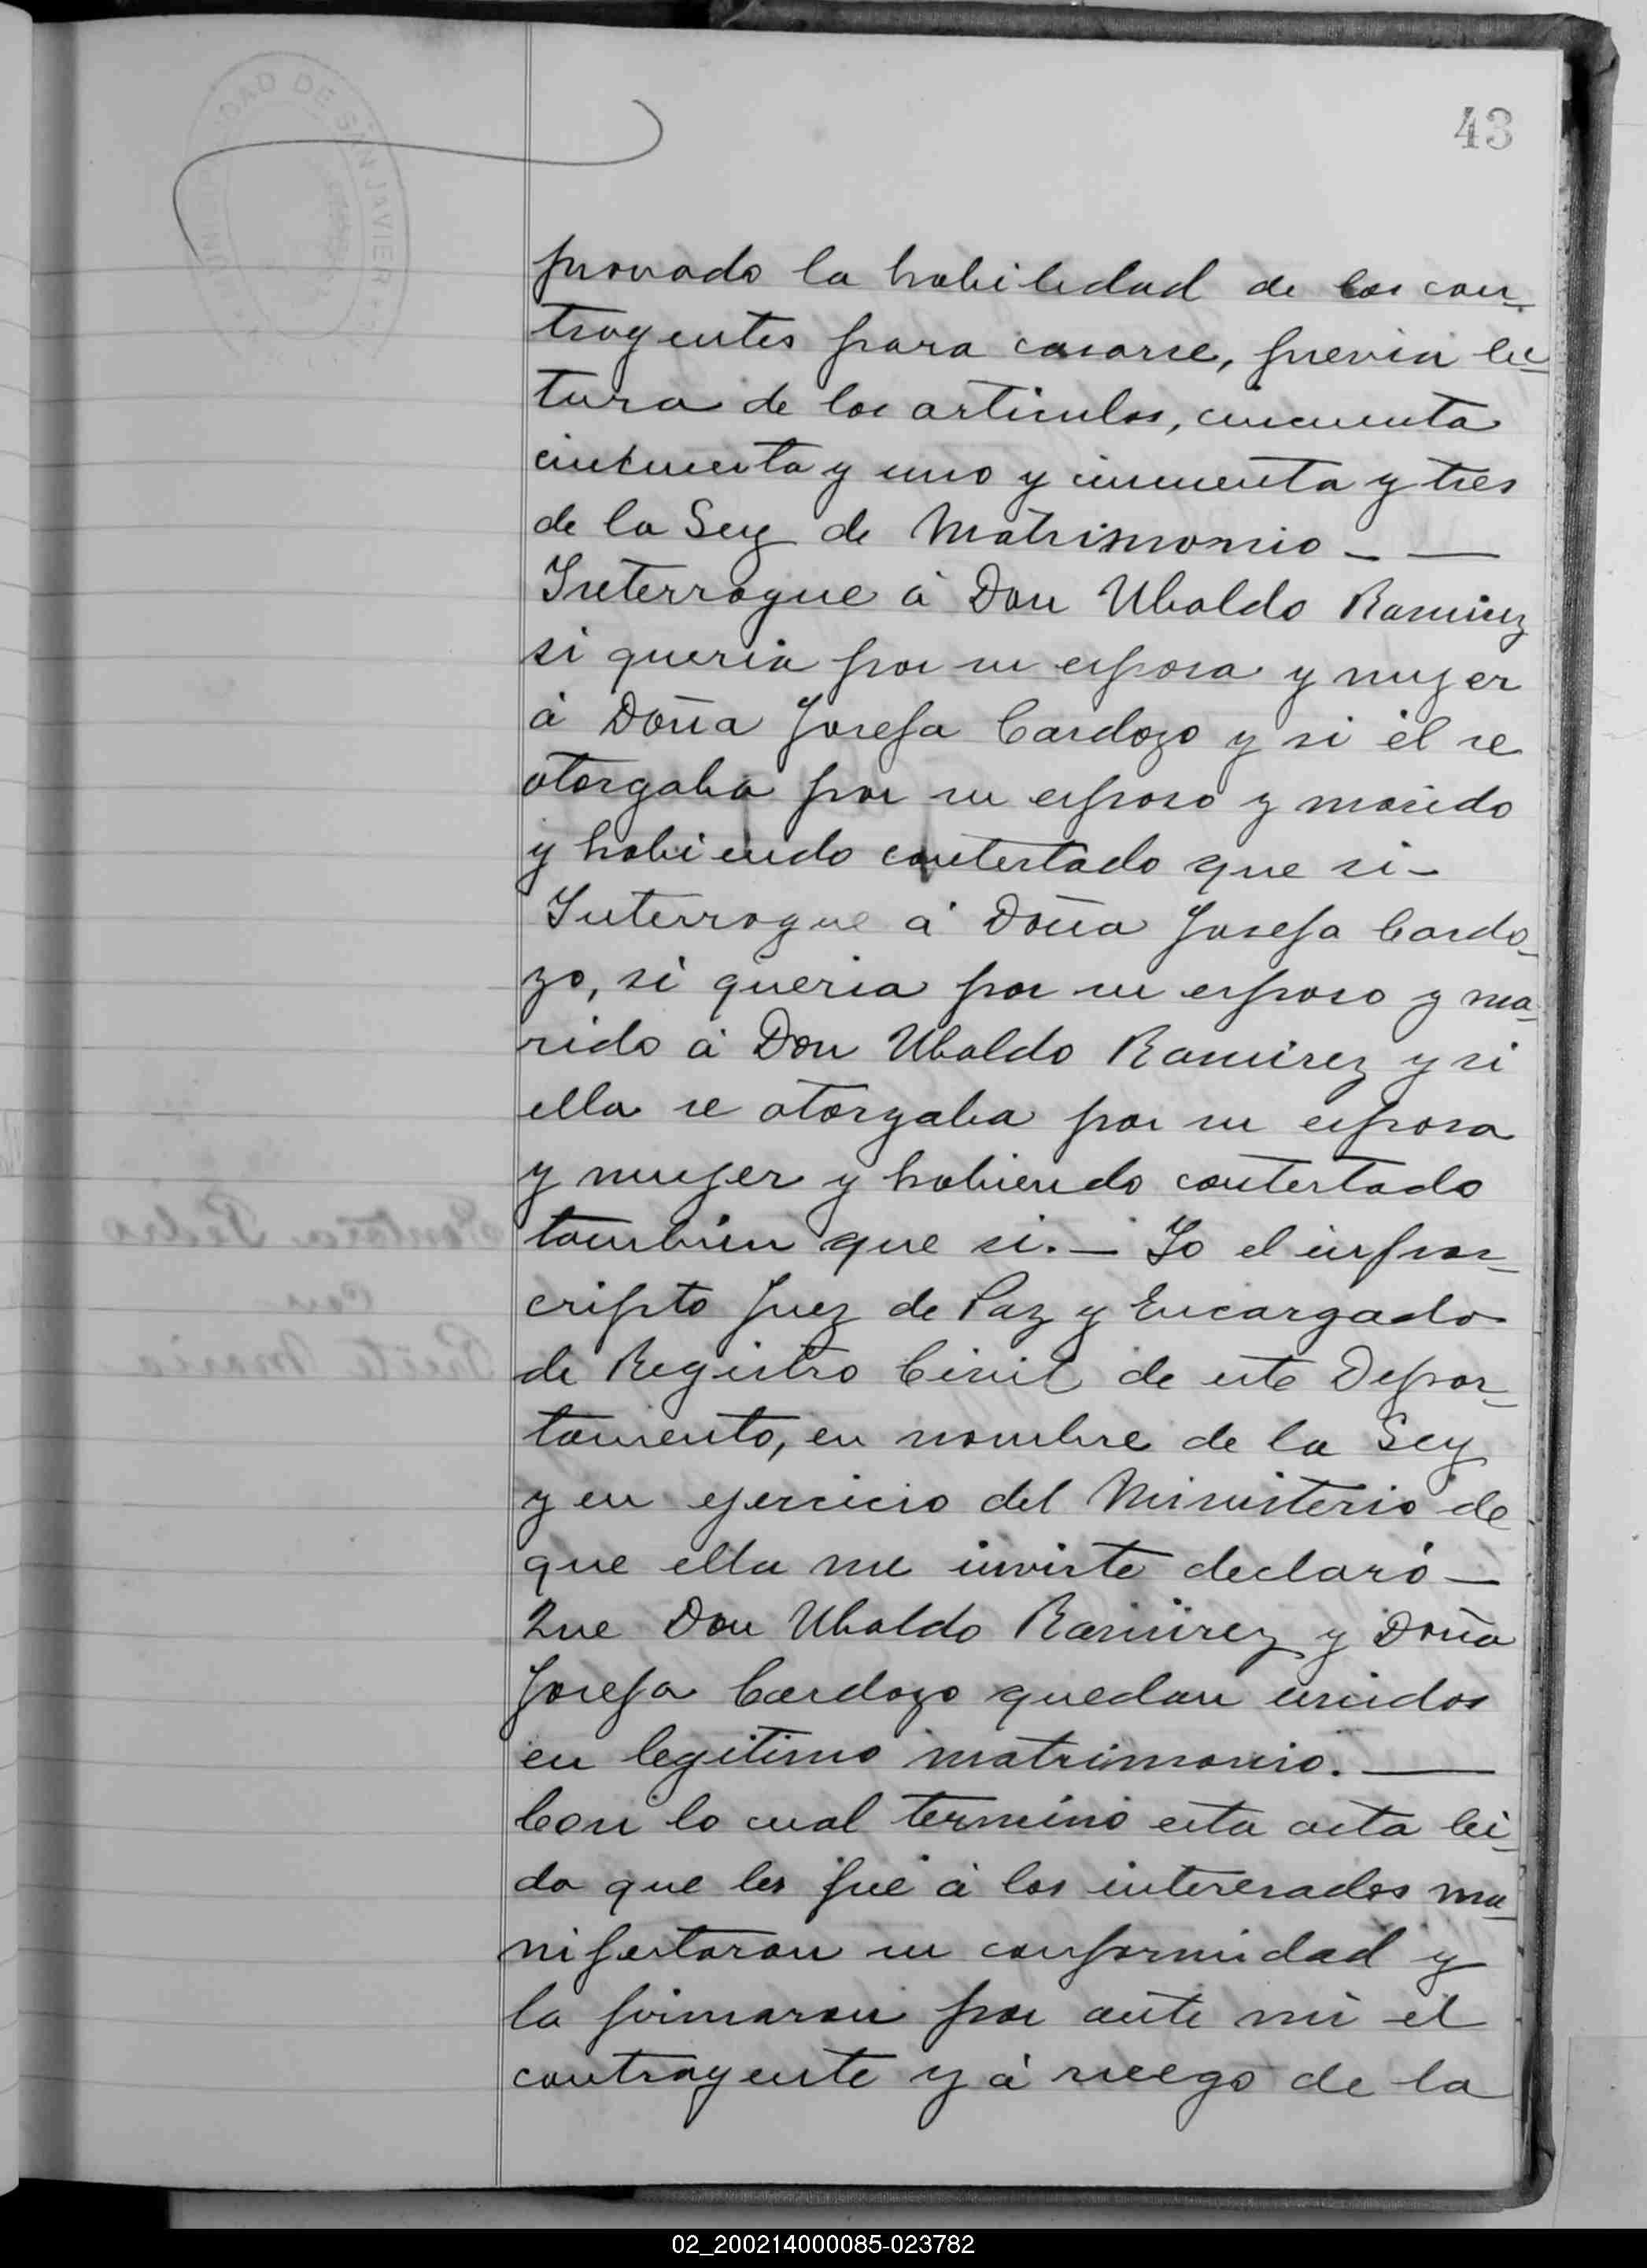 43
MUNICIPALIDAD DE SAN JAVIER
provado la habilidad de los con-
trayentes para casarse, previa lec-
tura de los articulos, cincuenta
cincuenta y uno y cincuenta y tres
de la Ley de Matrimonio - —
Interrogue á Don Ubaldo Ramirez
si queria por su esposa y muger
á Doña Josefa Cardozo y si él se
otorgaba por su esposo y marido
y habiendo contestado que si -
Interrogue á Doña Josefa Cardo-
zo, si queria por su esposo y ma-
rido á Don Ubaldo Ramirez y si
ella se otorgaba por su esposa
y muger y habiendo contestado
tambien que si. — Yo el infras-
cripto Juez de Paz y Encargado
de Registro Civil de este Depar-
tamento, en nombre de la Ley
y en ejercicio del Ministerio de
que ella me inviste declaró —
Que Don Ubaldo Ramirez y Doña
Josefa Cardozo quedan unidos
en legitimo matrimonio. —
Con lo cual terminó esta acta lei-
da que les fué á los interesados ma-
nifestaron su conformidad y
la firmaron por ante mi el
contrayente y á ruego de la
02_200214000085-023782